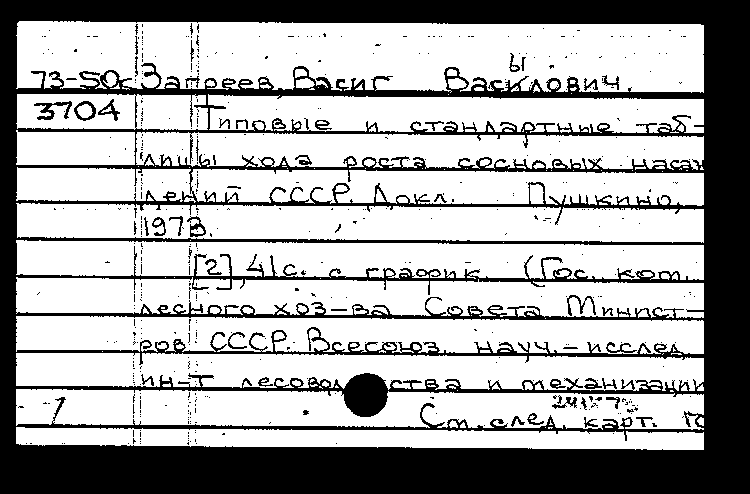 73-50к Загреев, Васиг Васи<ы>лович.
3704 Типовые и стандартные таб-
лицы хода роста сосновых насаж
дений СССР. Докл. Пушкино,
1973.
[2], 41с. с график. (Гос. ком.
лесного хоз-ва Совета Минист-
ров СССР. Всесоюз. науч.-исслед.
ин-т лесоводства и механизации
1 См. след. карт.